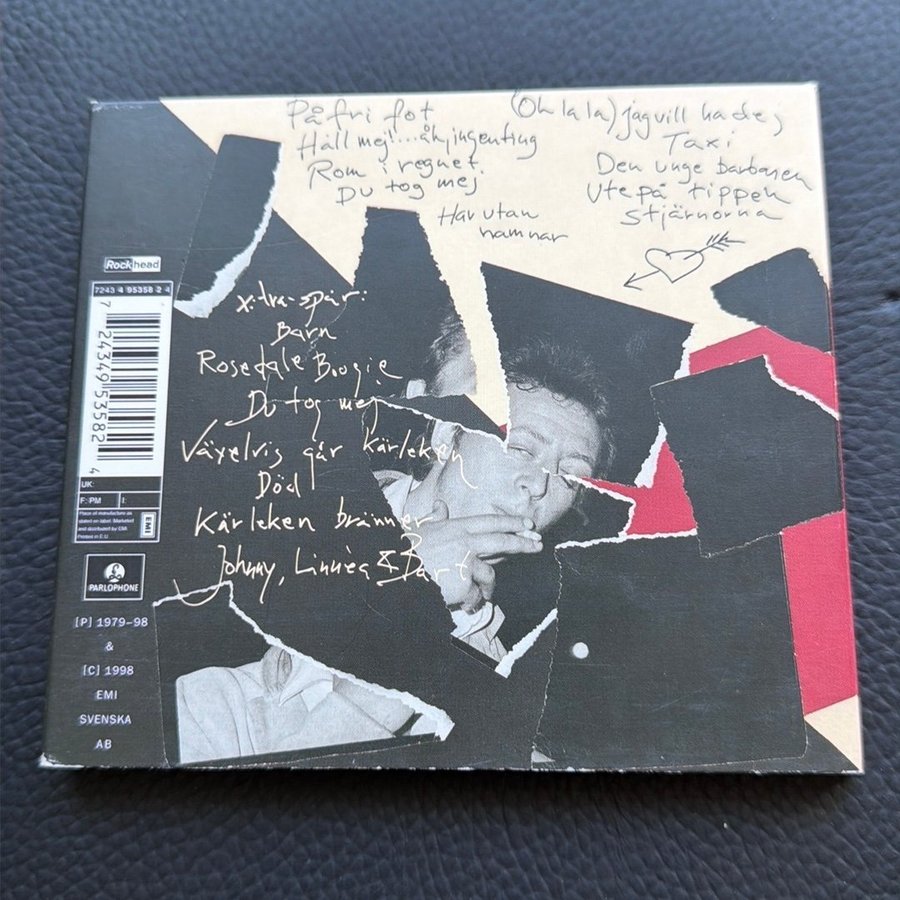 På fri fot
Håll mej!...åh, ingenting
Rom i regnet
Du tog mej
(Oh la la) jag vill ha dej
Taxi
Den unge barbaren
Ute på tippen
Stjärnorna
Har utan
namnar
x:tra-spår:
Barn
Rosedale Boogie
Du tog mej
Växelvis går kärleken
Död
Kärleken bränner
Johnny, Linnéa & Bart
Rockhead
7243 4 95358 2 4
7 24349 53582 4
UK:
F: PM I:
Place of manufacture as
stated on label. Marketed
and distributed by EMI.
Printed in E.U.
EMI
PARLOPHONE
[P] 1979-98
&
[C] 1998
EMI
SVENSKA
AB